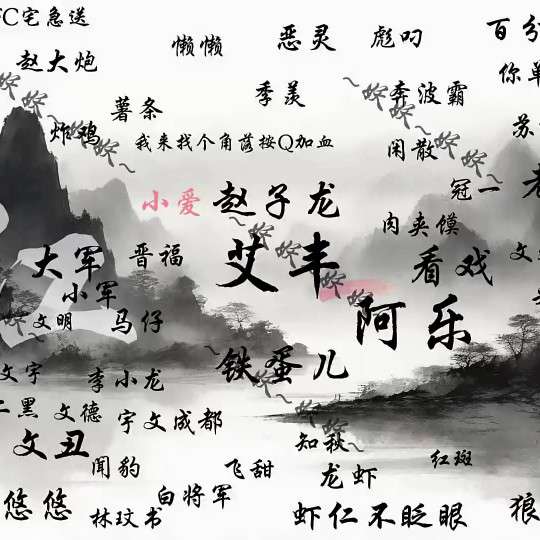 FC宅急送
懒懒
恶灵
彪叼
百分
赵大炮
你单
季羡
奔波霸
薯条
炸鸡
苏
我来找个角落按Q加血
闲散
冠一
小爱
赵子龙
肉夹馍
大军
晋福
艾丰
看戏
小军
文明
马仔
阿乐
文宇
李小龙
铁蛋儿
二黑
文德
宇文成都
文丑
知秋
闻豹
飞甜
龙虾
红斑
悠悠
白将军
林玟书
虾仁不眨眼
狼